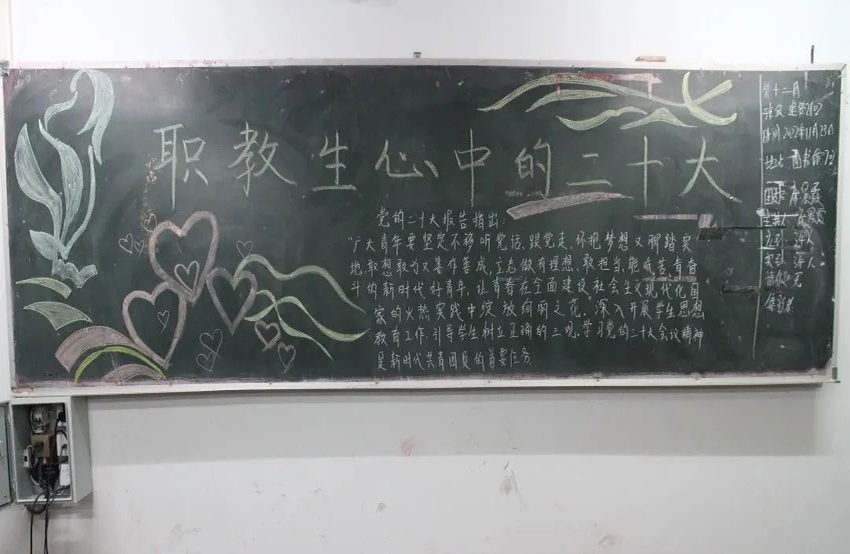 职教生心中的二十大
党的二十大报告指出:
"广大青年要坚定不移听党话、跟党走,怀抱梦想又脚踏实
地,敢想敢为又善作善成,立志做有理想、敢担当、能吃苦、肯奋
斗的新时代好青年,让青春在全面建设社会主义现代化国
家的火热实践中绽放绚丽之花。深入开展学生思想
教育工作,引导学生树立正确的三观,学习党的二十大会议精神
是新时代共青团员的首要任务
第十二周
时间 2022年11月23日
地点
主持人